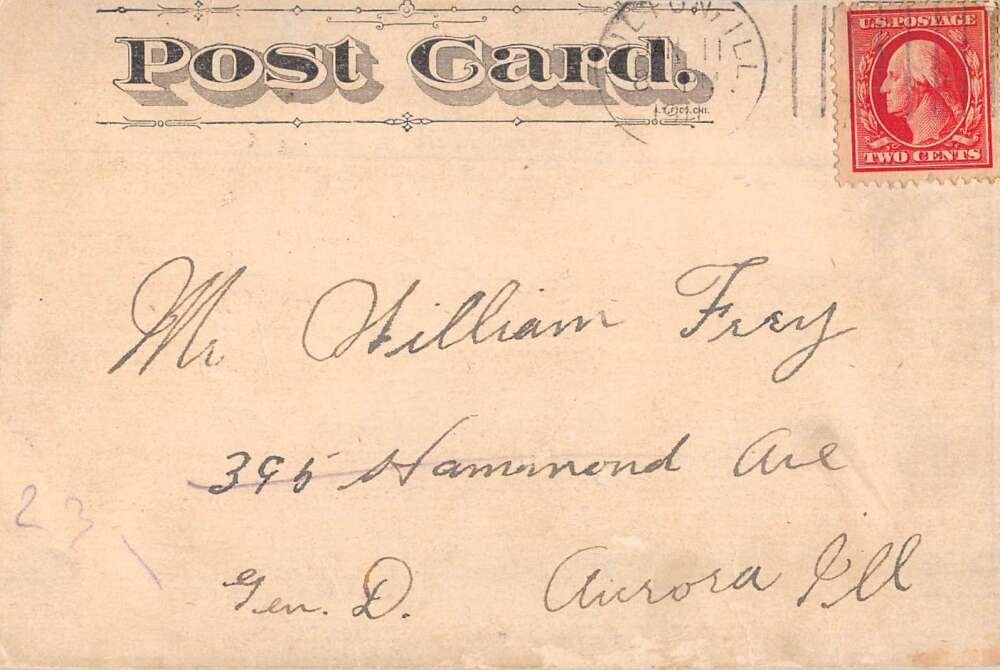 Post Card.
ILL.
11
U.S. POSTAGE
TWO CENTS
Mr William Frey
395 Hammond Ave
23
Gen. D. Aurora Ill